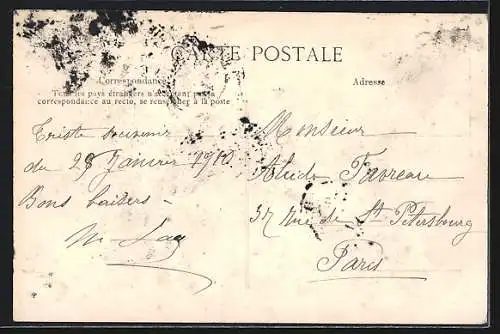 CARTE POSTALE
Correspondance
Tous les pays étrangers n'acceptent pas la
correspondance au recto, se renseigner à la poste
Adresse
Triste souvenir
du 28 Janvier 1910
Bons baisers -
Monsieur
Favreau
37 Rue de St Pétersbourg
Paris